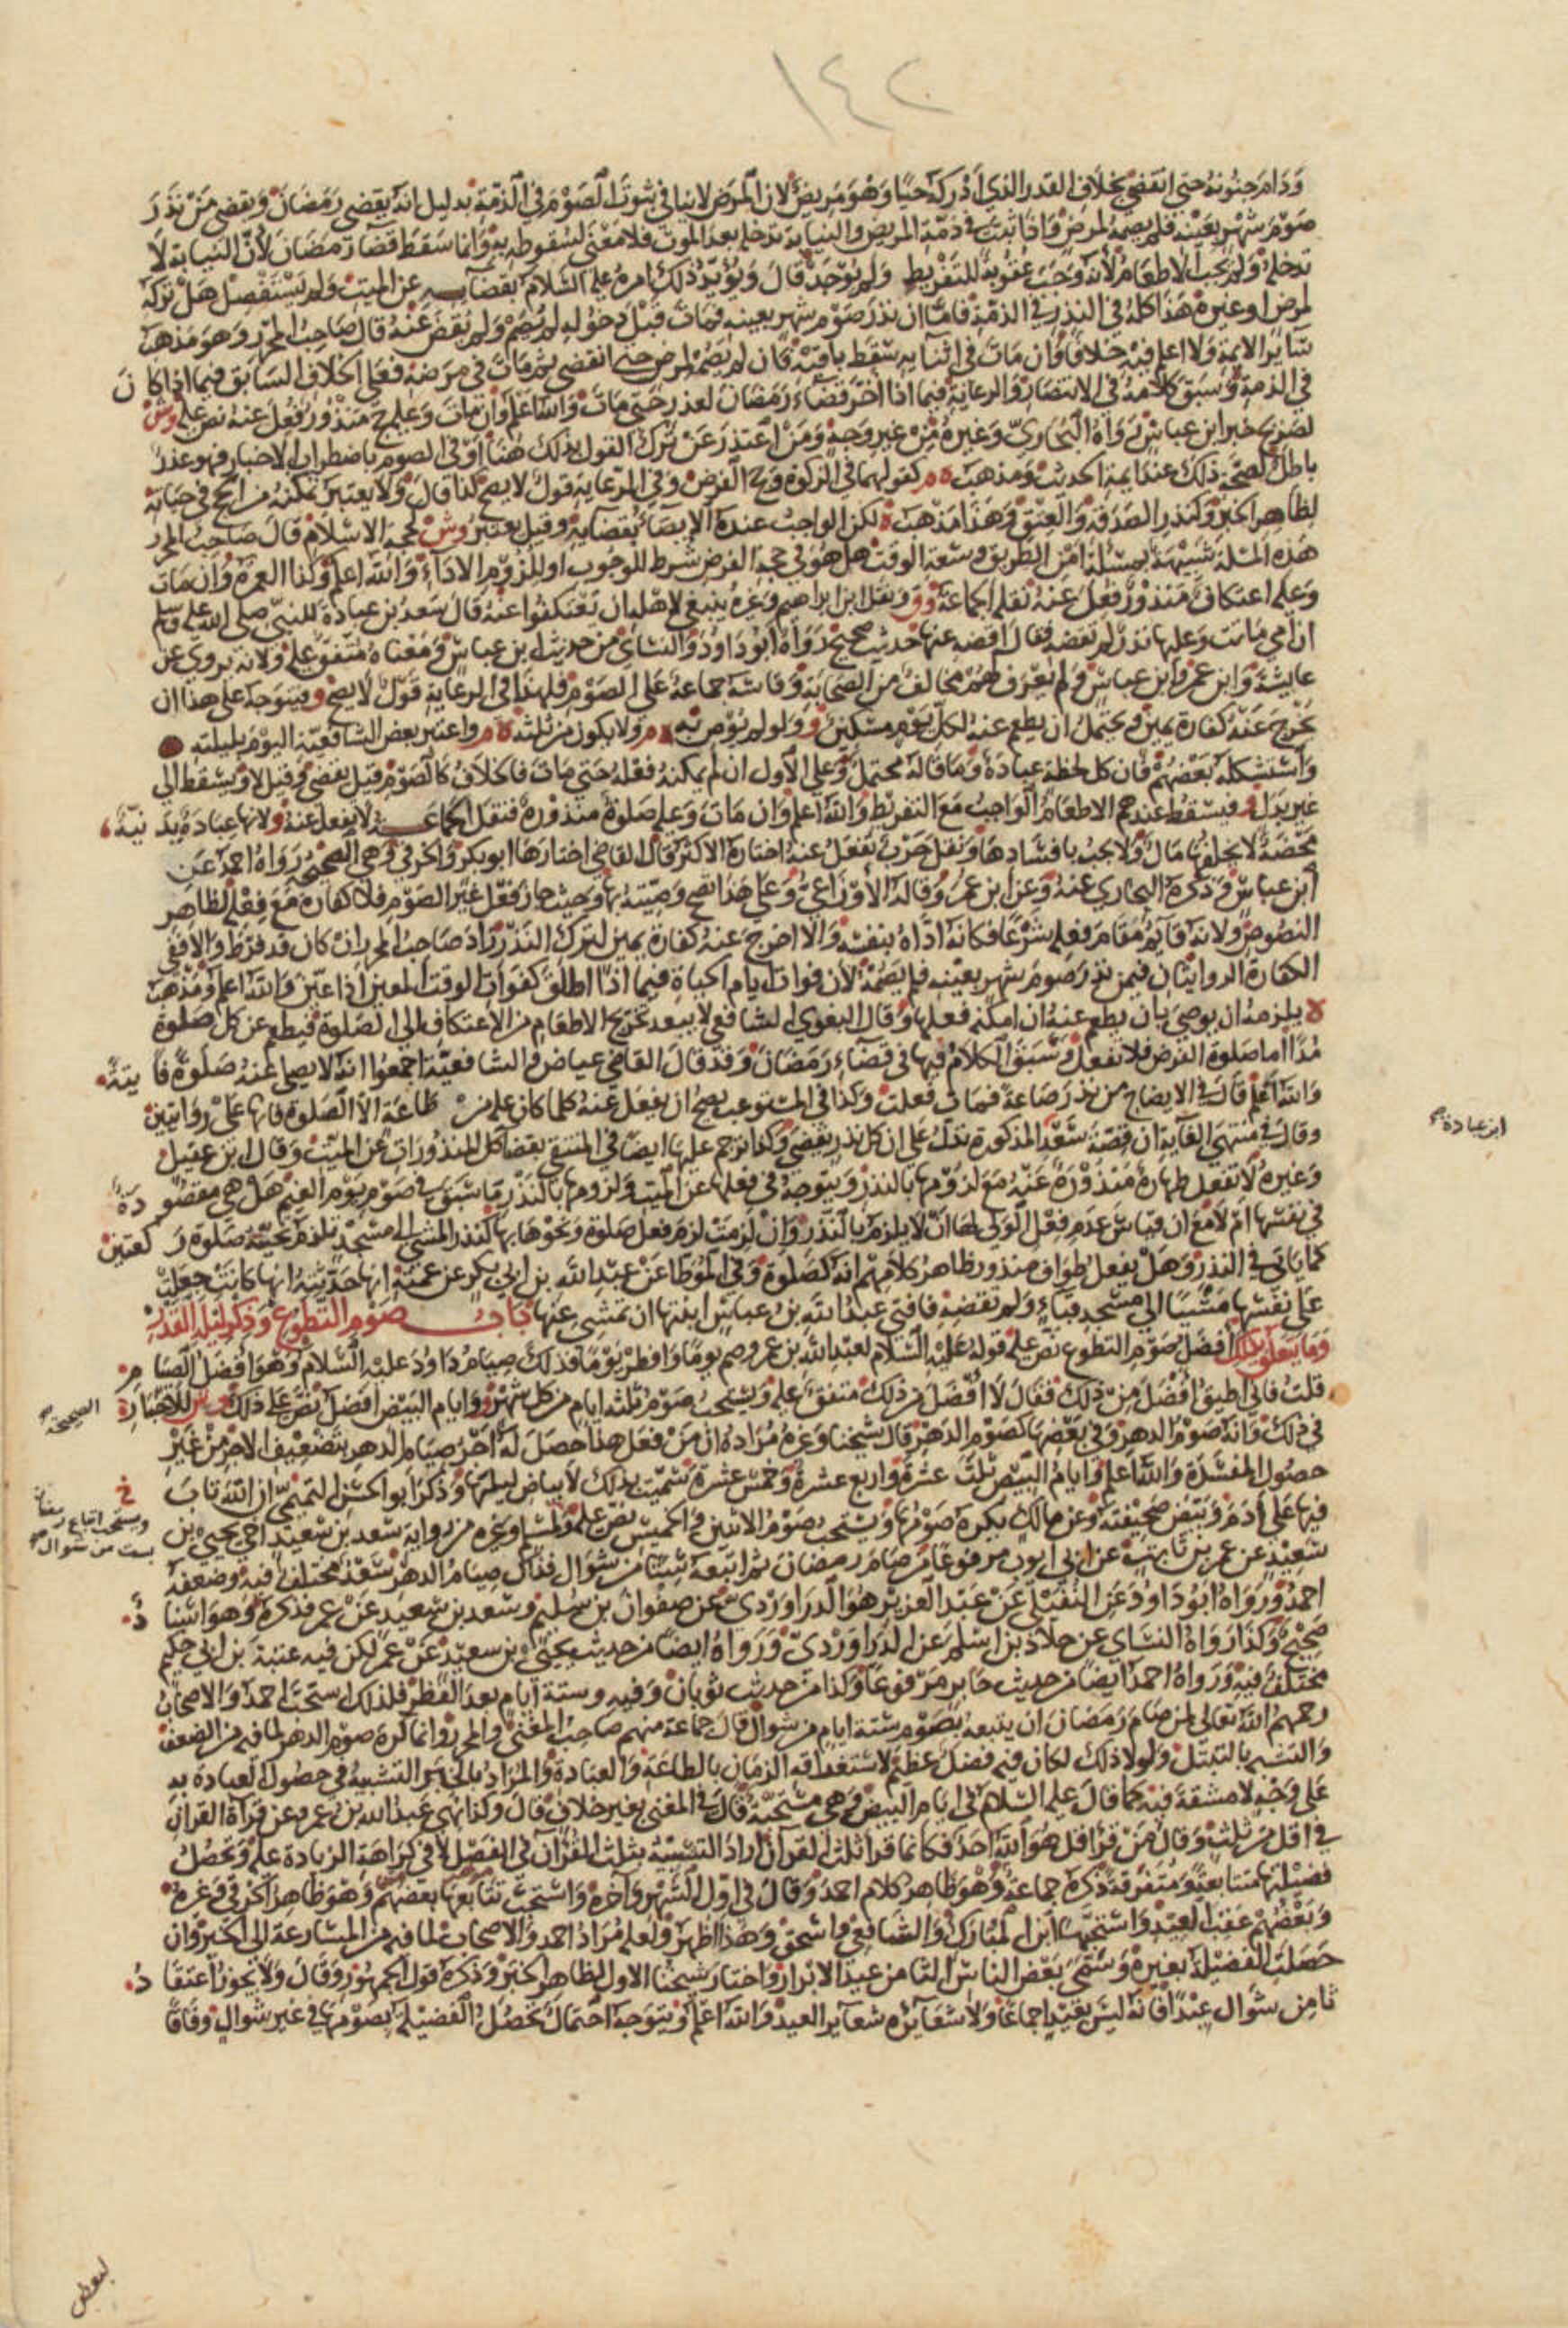 ١٤٢
ودام جنونه حتى انقضى بخلاف القدر الذى ادركه حيا وهو مريض لان المرض لا ينافي ثبوت الصوم في الذمة بدليل انه يقضي رمضان ويقضي من نذر
صوم شهر بعينه فلم يصمه لمرض واذا ثبت في ذمة المريض والنيابة تدخله بعد الموت فلا معنى لسقوطه به وانما سقط قضآ رمضان لان النيابة لا
تدخله ولم يجب الاطعام لأنه وجب عقوبة للتفريط ولم يوجد قال ويؤيد ذلك امره عليه السلام بقضآيه عن الميت ولم يستفصل هل تركه
لمرض او غيره هذا كله في النذر في الذمة فاما ان نذر صوم شهر بعينه فمات قبل دخوله لم يصم ولم يقض عنه قال صاحب المحرر وهو مذهب
سآير الائمة ولا اعلم فيه خلافا وان مات في اثنآيه سقط باقيه فان لم يصمه لمرض حتى انقضى ثم مات في مرضه فعلى الخلاف السابق فيما اذا كان
في الذمة وسبق كلامه في الانتصار والرعاية فيما اذا اخر قضآء رمضان لعذر حتى مات والله اعلم وان مات وعليه حج منذور فعل عنه نص عليه وش
لصريح خبر ابن عباس رواه البخاري وغيره من غير وجه ومن اعتذر عن ترك القول بذلك هنا او في الصوم باضطراب الاخبار فهو عذر
باطل لصحة ذلك عند ايمة الحديث ومذهب ه م كقولهما في الزكوة وحج الفرض وفي الرعاية قول لا يصح كذا قال ولا يعتبر تمكنه من الحج في حياته
لظاهر الخبر وكنذر الصدقة والعتق وهذا مذهب ه لكن الواجب عنده الايصآ بقضآيه وقيل يعتبر وش كحجة الاسلام قال صاحب المحرر
هذه المسئلة شبيهة بمسئلة امن الطريق وسعة الوقت هل هو في حجة الفرض شرط للوجوب او للزوم الادآء والله اعلم وكذا العمرة وان مات
وعليه اعتكاف منذور فعل عنه نقله الجماعة وق ونقل ابن ابراهيم وغيره ينبغي لاهله ان يعتكفوا عنه قال سعد بن عبادة للنبي صلى الله عليه وسلم
ان امي ماتت وعليها نذر لم تقضه فقال اقضه عنها حديث صحيح رواه ابو داود والنسائي من حديث ابن عباس ومعناه متفق عليه ولانه يروي عن
عايشة وابن عمر وابن عباس ولم يعرف لهم مخالف من الصحابة وقاسه جماعة على الصوم فلهذا في الرعاية قول لا يصح ويتوجه على هذا ان
يخرج عنه كفارة يمين ويحتمل ان يطعم عنه لكل يوم مسكين و ولو لم يوص به ه م ولا يكون من ثلثه ه م واعتبر بعض الشافعية اليوم بليلته
واستشكله بعضهم فان كل لحظة عبادة وما قاله محتمل وعلى الاول ان لم يمكنه فعله حتى مات فالخلاف كالصوم قيل يقضي وقيل لا ويسقط الى
غير بدل و فيسقط عندهم الاطعام الواجب مع التفريط والله اعلم وان مات وعليه صلوة منذورة فنقل الجماعة لا يفعل عنه و لانها عبادة بدنية
محضة لا يخلفها مال ولا يجب بافسادها ونقل حرب تفعل عنه اختاره الاكثر قال القاضي اختارها ابو بكر والخرقي وهي الصحيحة رواه احمد عن
ابن عباس وذكره البخاري عنه وعن ابن عمر وقاله الأوزاعي وعلى هذا تصح وصيته بها وحيث جاز فعل غير الصوم فلا كفارة مع فعله لظاهر
النصوص ولانه قآيم مقام فعله شرعا فكانه اداه بنفسه والا اخرج عنه كفارة يمين لترك النذر زاد صاحب المحرر ان كان قد فرط والا ففي
الكفارة الروايتان فيمن نذر صوم شهر بعينه فلم يصمه لان فوات ايام الحياة فيما اذا اطلق كفوات الوقت المعين اذا عين والله اعلم ومذهب
ه يلزمه ان يوصي بان يطعم عنه ان امكنه فعلها وقال البغوي الشافعي لا يبعد تخريج الاطعام من الاعتكاف الى الصلوة فيطعم عن كل صلوة
مدا اما صلوة الفرض فلا تفعل وسبق الكلام فيها في قضآء رمضان وقد قال القاضي عياض والشافعية اجمعوا انه لا يصلى عنه صلوة فايتة
والله اعلم قال في الايضاح من نذر طاعة فمات فعلت وكذا في المستوعب يصح ان يفعل عنه كلما كان عليه من طاعة الا الصلوة فانها على روايتين
وقال في منتهى الغاية ان قصة سعد المذكورة تدل على ان كل نذر يقضي وكذا ترجم عليها ايضا في المنتقى بقضآ كل المنذورات عن الميت وقال ابن عقيل
وغيره لا تفعل طهارة منذورة عنه مع لزومها بالنذر ويتوجه في فعلها عن الميت ولزومها بالنذر ما سبق في صوم يوم الغيم هل هي مقصودة
في نفسها ام لا مع ان قياس عدم فعل الولي لها ان لا يلزم بالنذر وان لزمت لزم فعل صلوة ونحوها بها كنذر المشي الى مسجد تلزم تحيته صلوة ركعتين
كما يأتي في النذر وهل يفعل طواف منذور ظاهر كلامهم انه كصلوة وفي الموطا عن عبد الله بن ابي بكر عن عمته انها حدثته انها كانت جعلت
على نفسها مشيا الى مسجد قبآء ولم تقضه فافتى عبد الله بن عباس ابنتها ان تمشي عنها باب صوم التطوع وذكر ليلة القدر
وما يتعلق بذلك افضل صوم التطوع نص عليه قوله عليه السلام لعبد الله بن عمرو صم يوما وافطر يوما فذلك صيام داود عليه السلام وهو افضل الصيام
قلت فاني اطيق افضل من ذلك فقال لا افضل من ذلك متفق عليه ويستحب صوم ثلثة ايام من كل شهر و وايام البيض افضل نص على ذلك وش للاخبار
في ذلك وانه صوم الدهر وفي بعضها كصوم الدهر قال شيخنا وغيره مراده ان من فعل هذا حصل له اجر صيام الدهر بتضعيف الاجر من غير
حصول المفسدة والله اعلم وايام البيض ثلث عشرة واربع عشرة وخمس عشرة سميت بذلك لابياض ليلها وذكر ابو الحسن التميمي ان الله تاب
فيها على ادم وبيض صحيفته وعن مالك يكره صومها ويستحب صوم الاثنين والخميس نص عليه ولمسلم وغيره من رواية سعد بن سعيد اخي يحيى بن
سعيد عن عمر بن ثابت عن ابي ايوب مرفوعا من صام رمضان ثم اتبعه ستا من شوال فذاك صيام الدهر سعد مختلف فيه وضعفه
احمد ورواه ابو داود عن النفيلي عن عبد العزيز هو الدراوردي عن صفوان بن سليم وسعد بن سعيد عن عمر فذكره وهو اسناد
صحيح وكذا رواه النسائي عن خلاد بن اسلم عن الدراوردي ورواه ايضا من حديث يحيى بن سعيد عن عمر لكن فيه عتبة بن ابي حكيم
مختلف فيه ورواه احمد ايضا من حديث جابر مرفوعا وكذا من حديث ثوبان وفيه وستة ايام بعد الفطر فلذلك استحب احمد والاصحاب
رحمهم الله تعالى لمن صام رمضان ان يتبعه بصوم ستة ايام من شوال قال جماعة منهم صاحب المغني والمحرر وانما كره صوم الدهر لما فيه من الضعف
والتشبه بالتبتل ولولا ذلك لكان فيه فضل عظيم لاستغراقه الزمان بالطاعة والعبادة والمراد بالخبر التشبيه في حصول العبادة به
على وجه لا مشقة فيه كما قال عليه السلام في ايام البيض وهي مستحبة قال في المغني بغير خلاف قال وكذا نهى عبد الله بن عمرو عن قرآة القران
في اقل من ثلث وقال من قرأ قل هو الله احد فكانما قرا ثلث القرآن اراد التشبيه بثلث القرآن في الفضل لا في كراهة الزيادة عليه وتحصل
فضيلتها متتابعة ومتفرقة ذكره جماعة وهو ظاهر كلام احمد وقال في اول الشهر وآخره واستحب تتابعها بعضهم وهو ظاهر الخرقي وغيره
وبعضهم عقب العيد واستحبهما ابن المبارك والشافعي واسحق وهذا اظهر ولعله مراد احمد والاصحاب لما فيه من المسارعة الى الخير وان
حصلت الفضيلة بغيره وسمى بعض الناس الثامن عيد الابرار واختار شيخنا الاول لظاهر الخبر وذكره قول الجمهور وقال ولا يجوز اعتقاد
ثامن شوال عيدا فانه ليس بعيد اجماعا ولا شعآيره شعآير العيد والله اعلم ويتوجه احتمال تحصل الفضيلة بصومها في غير شوال وفاقا
ابن عبادة صح
الصحيحة صح
ويستحب اتباع رمضان
بست من شوال صح
لبعض